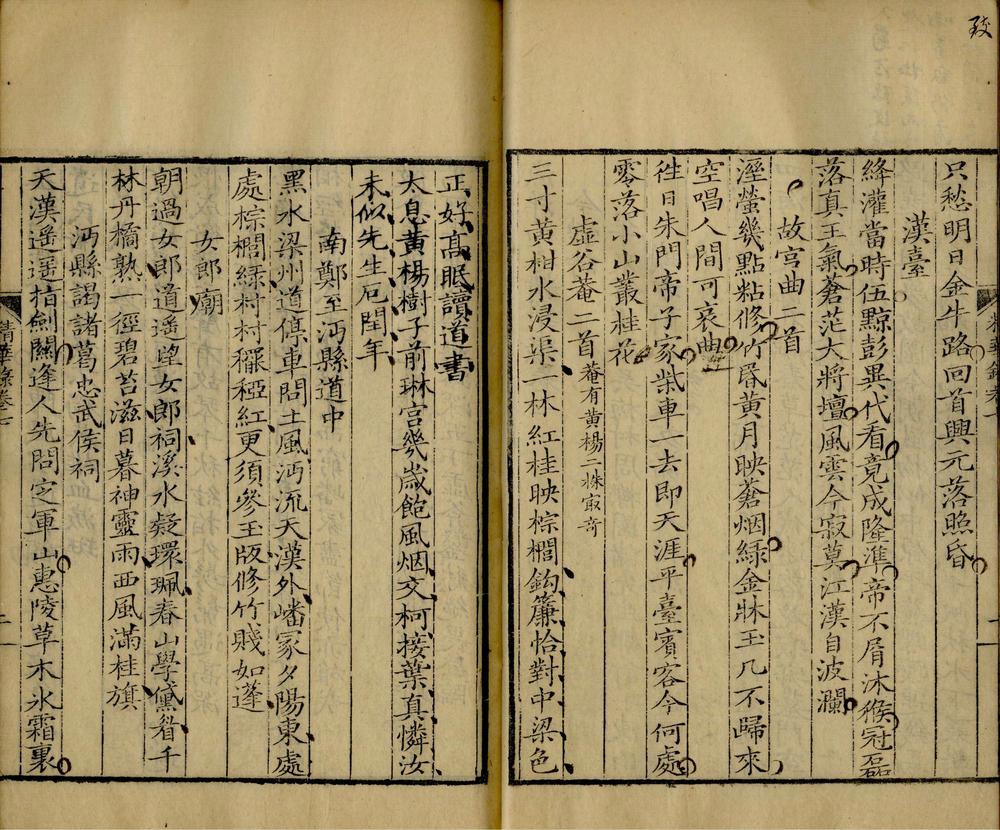 致
只愁明日金牛路回首興元落照昏
漢臺
絳灌當時伍黥彭異代看竟成隆準帝不屑沐猴冠磊
落真王氣蒼茫大將壇風雲今寂莫江漢自波瀾
故宮曲二首
溼螢幾點粘修竹昏黃月映蒼烟綠金牀玉几不歸來
空唱人間可哀曲
徃日朱門帝子家柴車一去即天涯平臺賓客今何處
零落小山叢桂花
虛谷菴二首菴有黃楊二株㝡奇
三寸黃柑水浸渠一林紅桂映棕櫚鈎簾恰對中梁色
正好高眠讀道書
太息黃楊樹子前琳宮幾歲飽風烟交柯接葉真憐汝
未似先生厄閏年
南鄭至沔縣道中
黑水梁州道停車問土風沔流天漢外嶓冢夕陽東處
處棕櫚綠村村䆉稏紅更須參玉版修竹賤如蓬
女郎廟
朝過女郎道遙望女郎祠溪水疑環珮春山學黛眉千
林丹橘熟一徑碧苔滋日暮神靈雨西風滿桂旗
沔縣謁諸葛忠武侯祠
天漢遥遥指劍關逢人先問定軍山惠陵草木氷霜裏